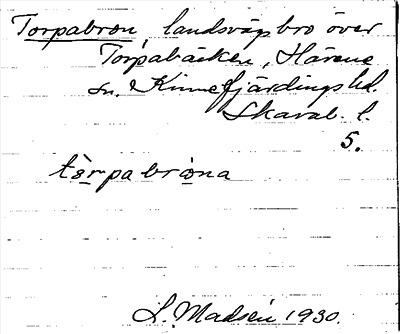 Torpabron, landsvägsbro över
Torpabäcken, Härene
sn. Kinnefjärdings hd.
Skarab. l.
5.
tèrpabròna
L. Madsén 1930.